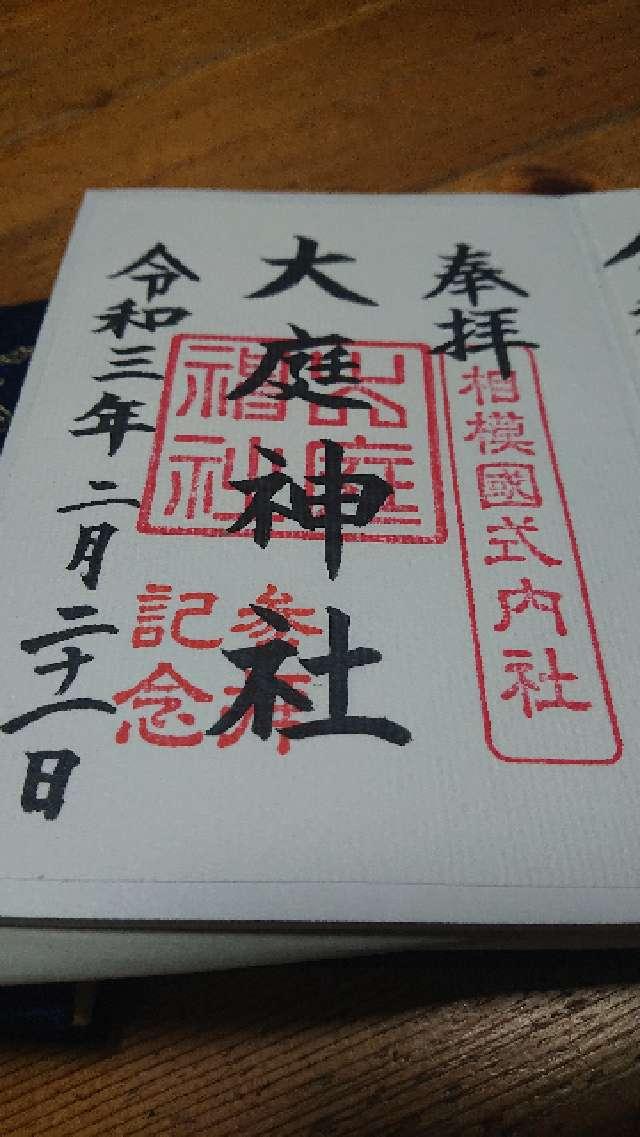 奉拝
相模國式内社
大庭神社
大庭神社
参拝記念
令和三年二月二十一日